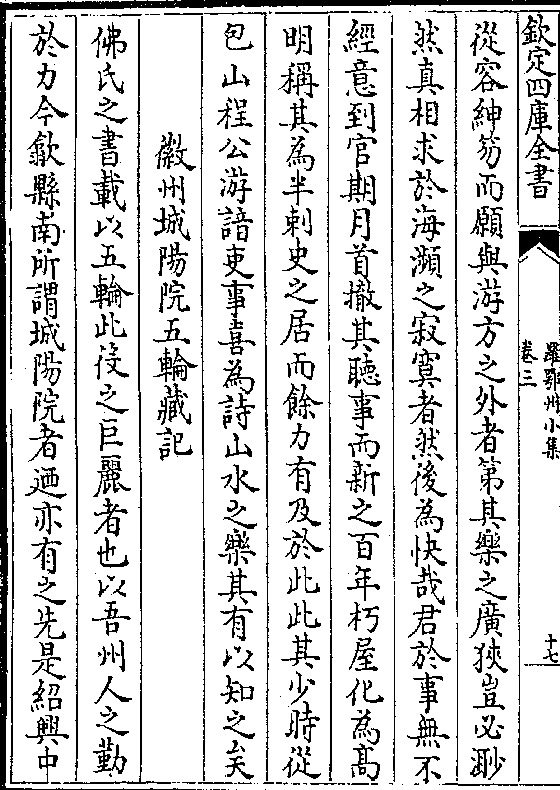 欽定四庫全書
羅鄂州小集
卷三
十七
從容紳笏而願與游方之外者第其樂之廣狹豈必渺
然真相求於海瀕之寂寞者然後為快哉君於事無不
經意到官期月首撤其聽事而新之百年朽屋化為髙
明稱其為半刺史之居而餘力有及於此此其少時從
包山程公游諳吏事喜為詩山水之樂其有以知之矣
徽州城陽院五輪藏記
佛氏之書載以五輪此役之巨麗者也以吾州人之勤
於力今歙縣南所謂城陽院者迺亦有之先是紹興中